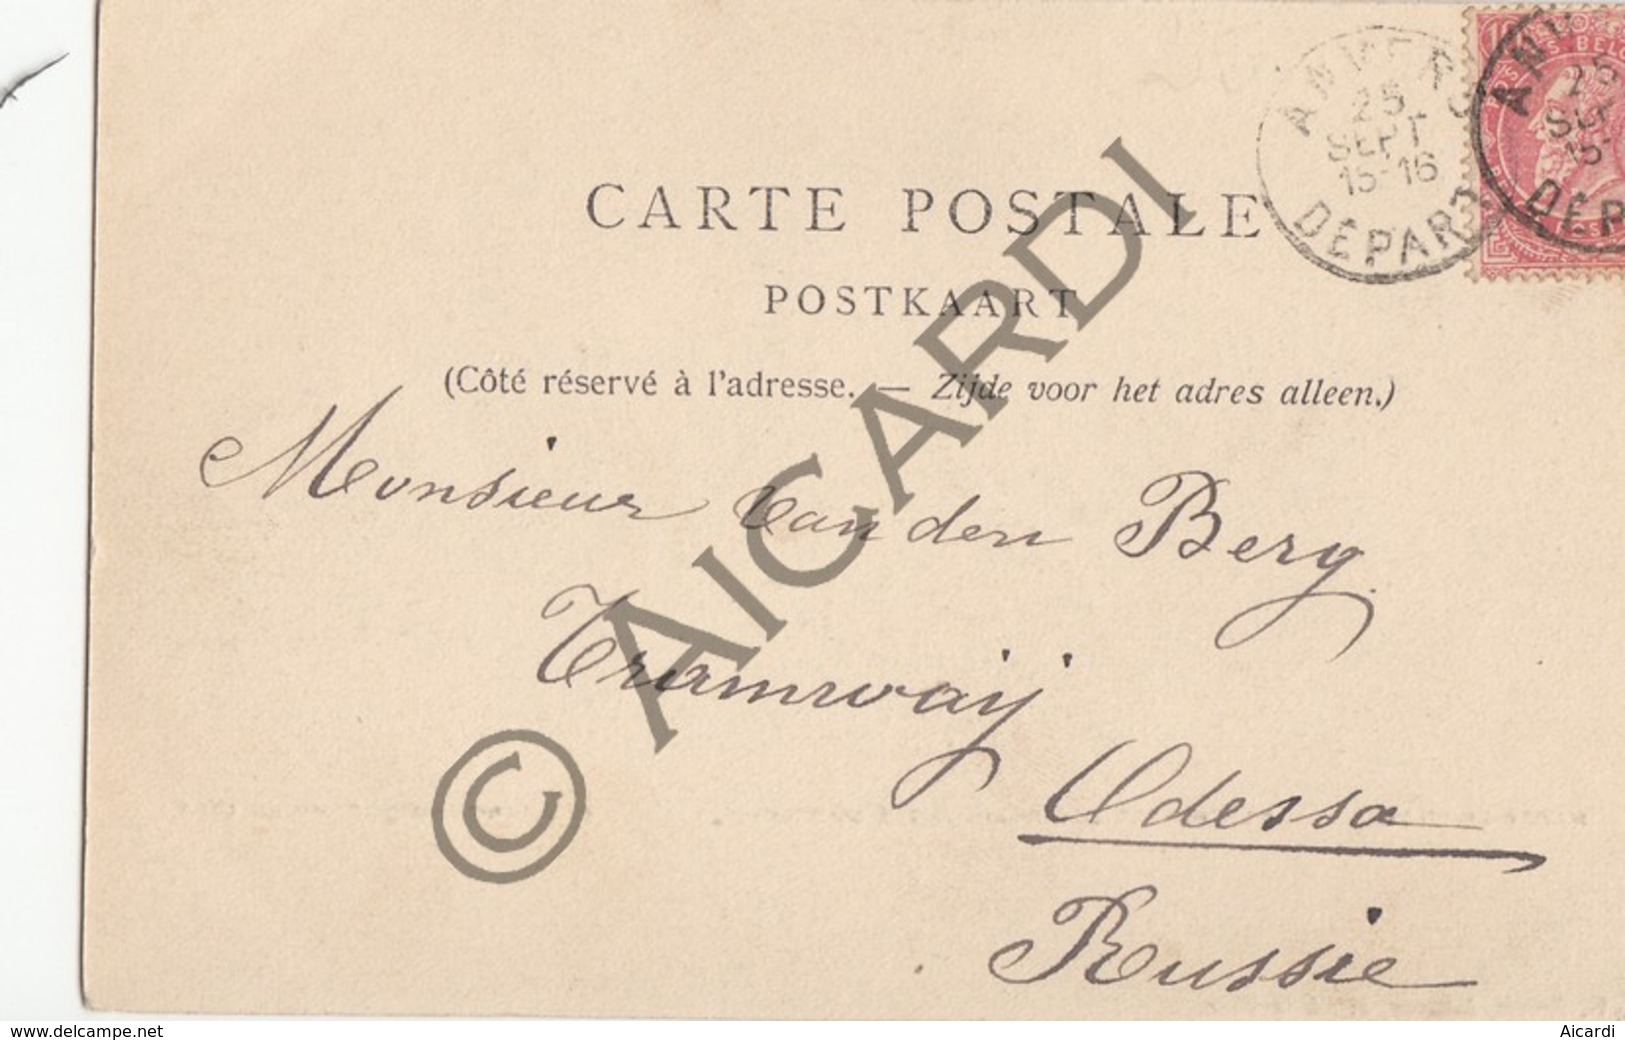 ANVERS
25
SEPT
15-16
DÉPART
CARTE POSTALE
POSTKAART
(Côté réservé à l'adresse. — Zijde voor het adres alleen.)
Monsieur Van den Berg
Tramwaij
Odessa
Russie
© AICARDI
www.delcampe.net
Aicardi